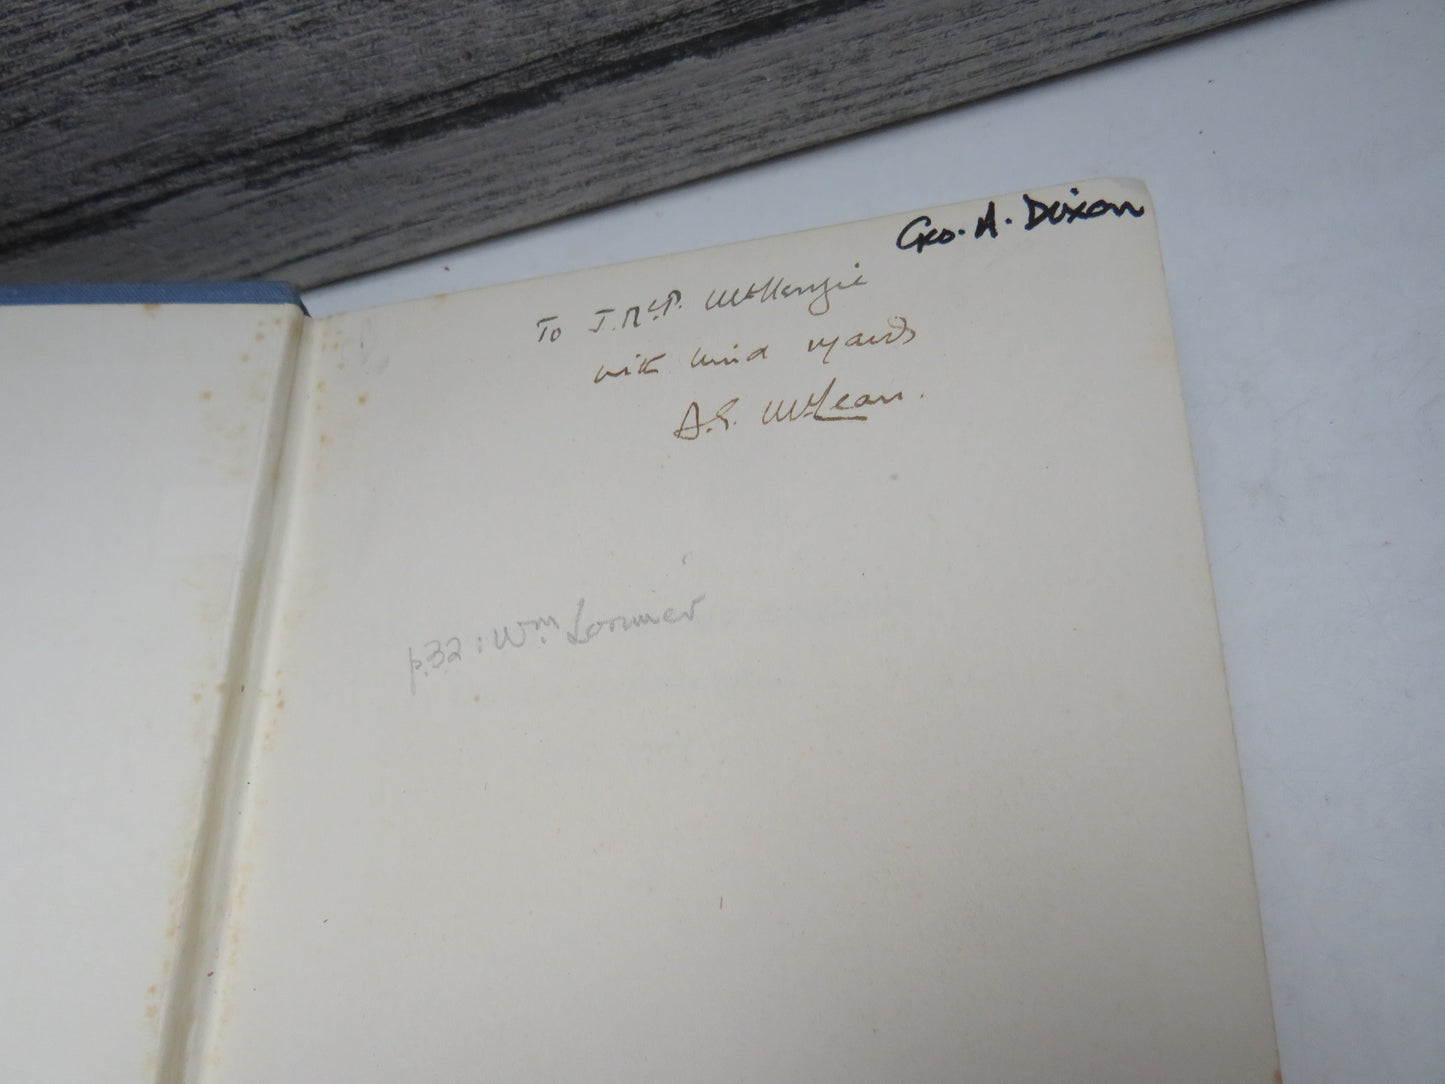 Geo. A. Dixon
To J. McP. McKenzie
with kind regards
A.S. McLean.
p.32: Wm Lorimer